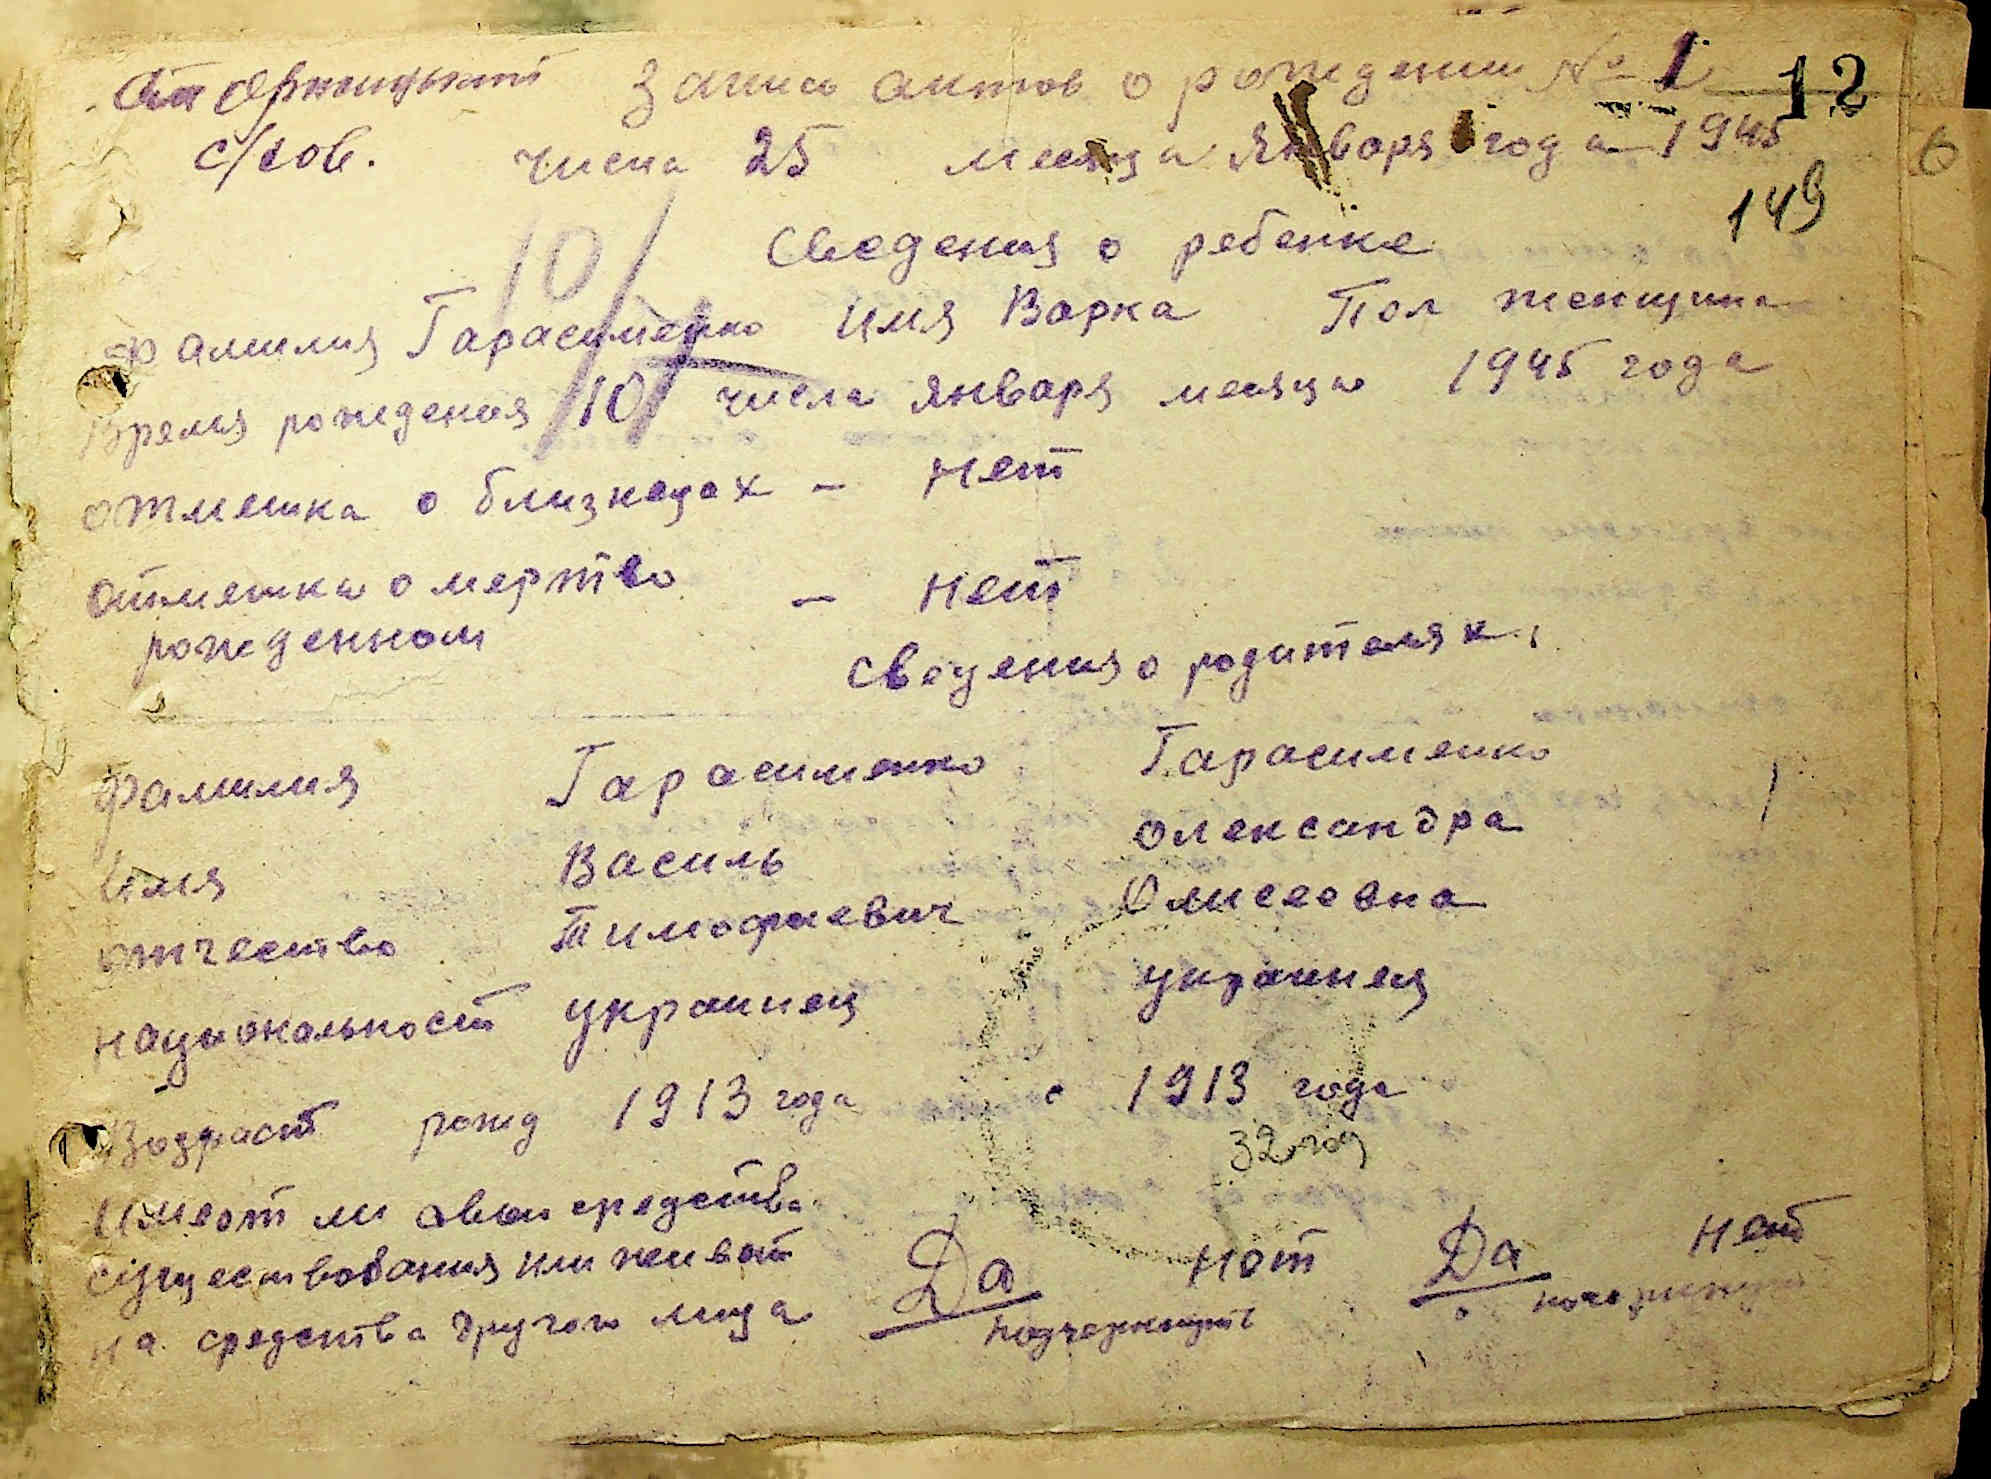 Запись актов о рождении № 1 12
с/сов. числа 25 месяца Января года 1945
149
6
Сведения о ребенке
10
фамилия Гарасименко имя Варка Пол женщина
Время рождения 10 числа января месяца 1945 года
отметка о близнецах - нет
отметка о мертво - нет
рожденном
Сведения о родителях
фамилия Гарасименко Гарасименко
имя Василь Олександра
отчество Тимофаевич Олисеевна
национальност украинец украинец
Возраст рожд 1913 года 1913 года
32 год
Имеют ли свои средства
существования или живет Да нет Да нет
на средства другого лица подчеркнуть подчеркнуть